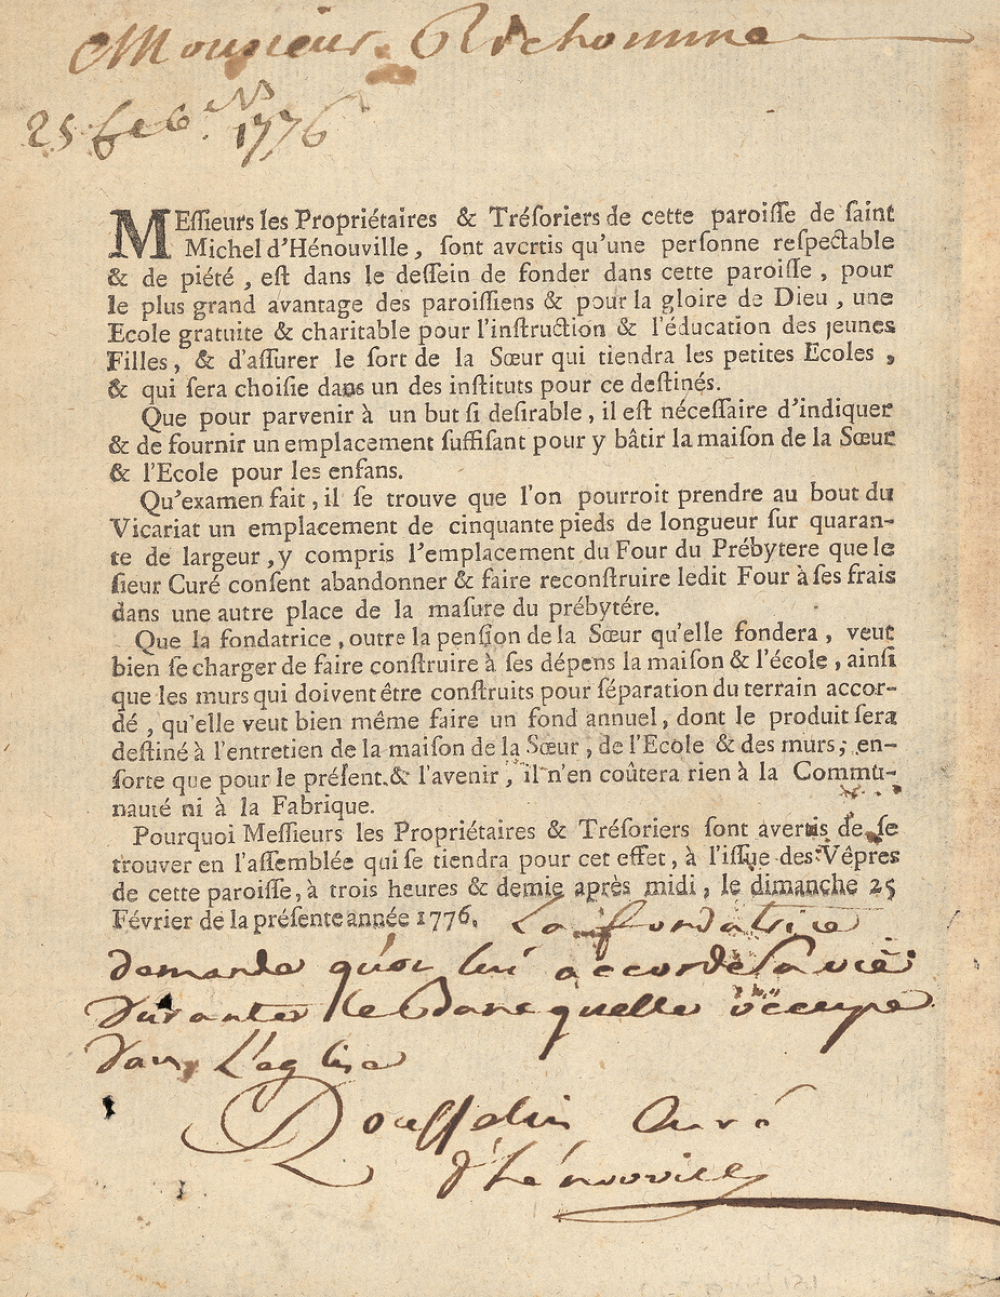 Monsieur Richomme
25 feb.er 1776
MEſſieurs les Propriétaires & Tréſoriers de cette paroiſſe de ſaint
Michel d'Hénouville, ſont avertis qu'une perſonne reſpectable
& de piété, eſt dans le deſſein de fonder dans cette paroiſſe, pour
le plus grand avantage des paroiſſiens & pour la gloire de Dieu, une
Ecole gratuite & charitable pour l'inſtruction & l'éducation des jeunes
Filles, & d'aſſurer le ſort de la Sœur qui tiendra les petites Ecoles,
& qui ſera choiſie dans un des inſtituts pour ce deſtinés.
Que pour parvenir à un but ſi deſirable, il eſt néceſſaire d'indiquer
& de fournir un emplacement ſuffiſant pour y bâtir la maiſon de la Sœur
& l'Ecole pour les enfans.
Qu'examen fait, il ſe trouve que l'on pourroit prendre au bout du
Vicariat un emplacement de cinquante pieds de longueur ſur quaran-
te de largeur, y compris l'emplacement du Four du Prébytere que le
ſieur Curé conſent abandonner & faire reconſtruire ledit Four à ſes frais
dans une autre place de la maſure du prébytére.
Que la fondatrice, outre la penſion de la Sœur qu'elle fondera, veut
bien ſe charger de faire conſtruire à ſes dépens la maiſon & l'école, ainſi
que les murs qui doivent être conſtruits pour ſéparation du terrain accor-
dé, qu'elle veut bien même faire un fond annuel, dont le produit ſera
deſtiné à l'entretien de la maiſon de la Sœur, de l'Ecole & des murs; en-
ſorte que pour le préſent & l'avenir, il n'en coûtera rien à la Commu-
nauté ni à la Fabrique.
Pourquoi Meſſieurs les Propriétaires & Tréſoriers ſont avertis de ſe
trouver en l'aſſemblée qui ſe tiendra pour cet effet, à l'iſſue des Vêpres
de cette paroiſſe, à trois heures & demie après midi, le dimanche 25
Février de la préſente année 1776. La fondatrice
demande qu'on lui accorde Sa vie
durante le Banc quelle occupe
dans L'eglise
Rousselin Curé
d'hénouville